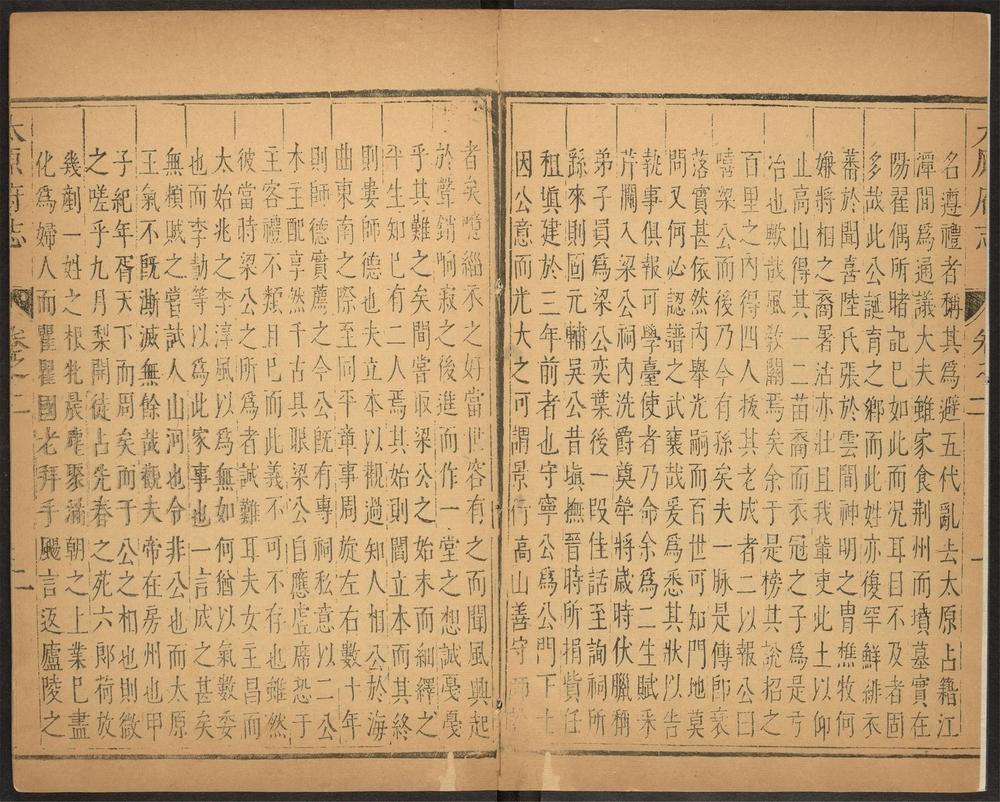 名遵禮者稱其為避五代亂去太原占籍江
潭間為通議大夫雖家食荆州而墳墓實在
陽翟偶所睹記巳如此而况耳目不及者固
多哉此公誕育之鄉而此姓亦復罕鮮緋衣
蕃於聞喜陸氏張於雲間神明之冑樵牧何
嫌將相之裔暑沽亦壯且我輩吏此土以仰
止高山得其一二苗裔而衣冠之子為是亏
冶也歟哉風敎關焉矣余于是榜其說招之
百里之內得四人拔其老成者二以報公曰
嘻梁公而後乃今有孫矣夫一脉是傳郎衰
落實甚依然內舉光嗣而百世可知門地莫
問又何必認譜之武襄哉爰為悉其狀以告
執事俱報可學臺使者乃命余為二生賦采
芹襴入梁公祠內洗爵奠斝將歲時伏臘稱
弟子員為梁公奕葉後一段佳話至詢祠所
繇來則固元輔吳公昔塡撫晉時所捐貲任
租塡建於三年前者也守寧公為公門下士
因公意而光大之可謂景行高山善守師
者矣噫緇衣之好當世容有之而聞風興起
於聲銷响寂之後進而作一堂之想誠戞戞
乎其難之矣間嘗取梁公之始末而細繹之
平生知巳有二人焉其始則閻立本而其終
則婁師德也夫立本以觀過知人相公於海
曲東南之際至同平章事周旋左右數十年
則師德實薦之今公旣有專祠私意以二公
木主配享然千古具眼梁公自應虛席恐于
主客禮不類且巳此義不可不存也雖然
彼當時梁公之所為者誠難耳夫女主昌而
太始兆之李淳風以為無如何猶以氣數委
也而李勣等以為此家事也一言成之甚矣
無賴賊之嘗試人山河也令非公也而太原
王氣不旣漸滅無餘哉觀夫帝在房州也甲
子紀年胥天下而周矣而于公之相也則微
之嗟乎九月梨開徒占先春之死六郎荷放
幾剷一姓之根牝晨麀聚滿朝之上業巳盡
化為婦人而瞿瞿國老拜手颺言返廬陵之
太原府志
卷之二
一
太原府志
卷之二
二